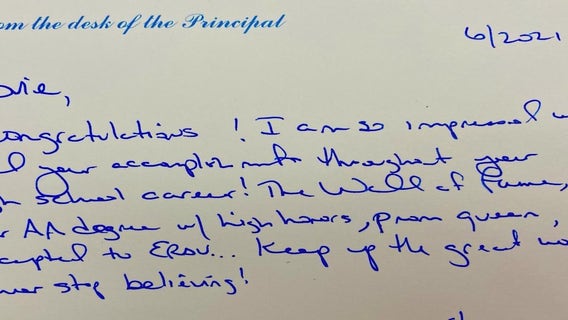 om the desk of the Principal
6/2021
ovie,
ongratulations ! I am so impressed w
l your accomplishments throughout your
h school career! The Wall of Fame,
r AA degree w/ high honors, prom queen,
cepted to ERAU... Keep up the great wo
ver stop believing!